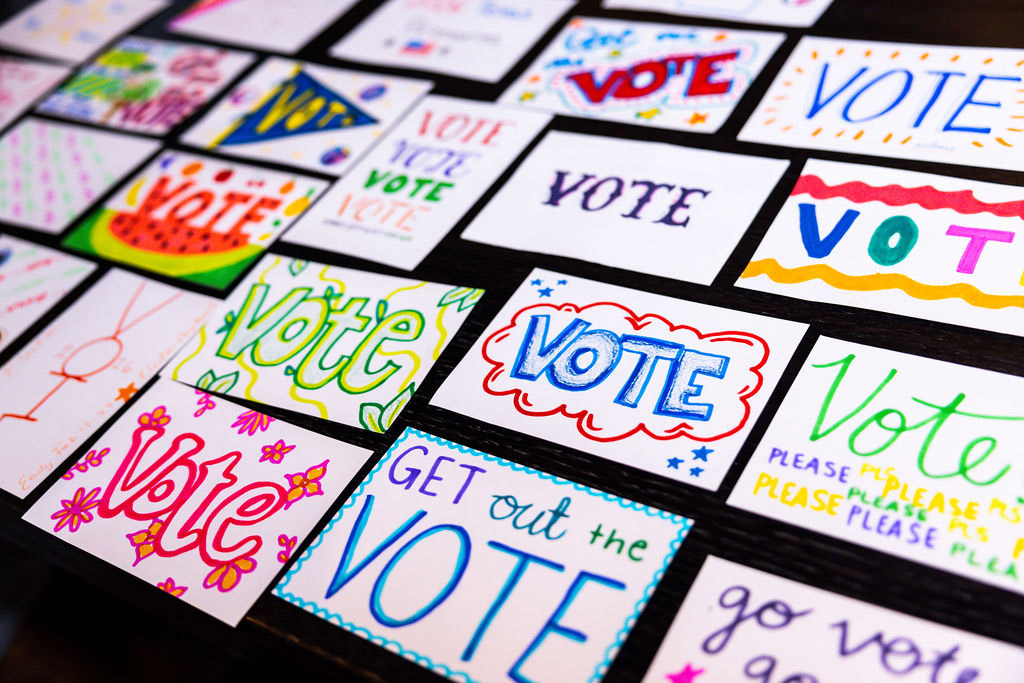 VOTE
VOTE
VOTE
VOTE
VOTE
VOTE
VOTE
VOTE
VOTE
VOTE
VOT
Vote
VOTE
Vote
PLEASE PLS PLEASE PLS
PLEASE PLEASE PLS
PLEASE PLEA
Vote
GET out the
VOTE
go vote
go